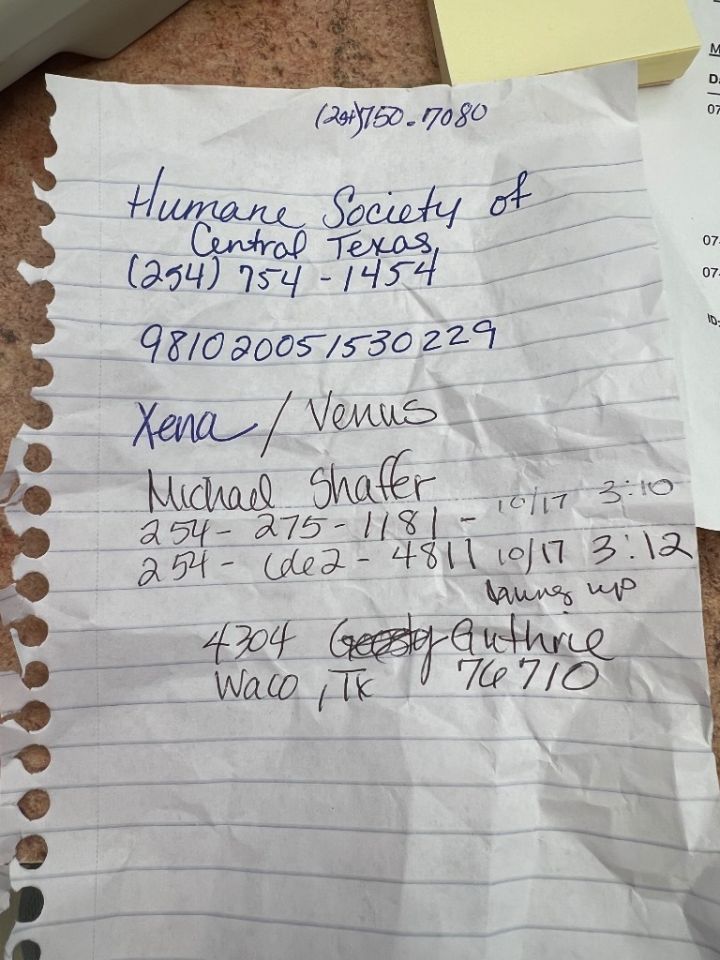 (254) 750-7080
Humane Society of
Central Texas
(254) 754-1454
981020051530229
Xena / Venus
Michael Shaffer
254-275-1181 - 10/17 3:10
254- 662-4811 10/17 3:12
hung up
4304 Guthrie
Waco, Tx 76710
M
Da
07
07-
07-
ID: